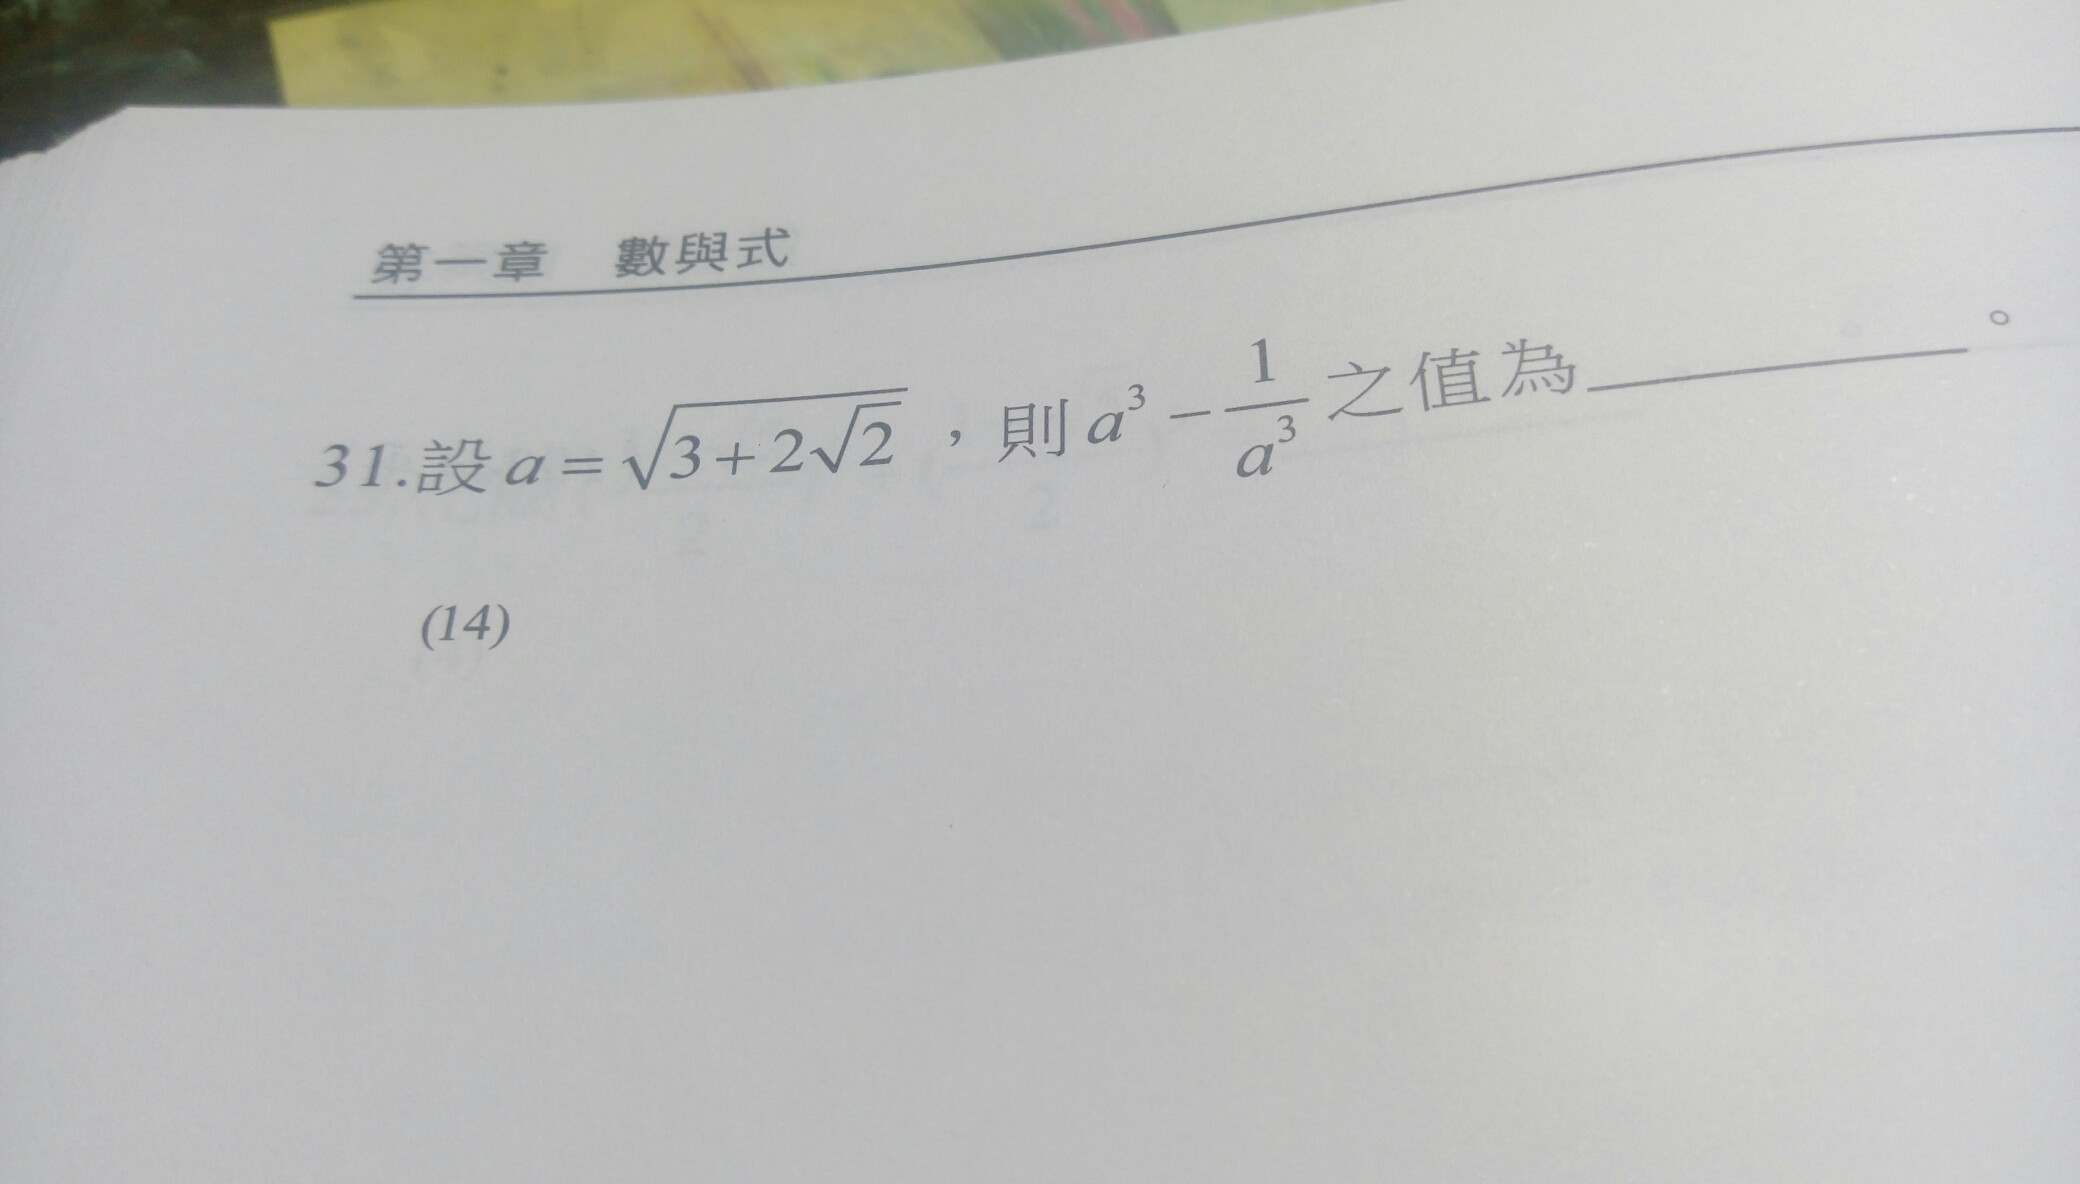 第一章 數與式
31.設 a = √(3+2√2) ，則 a³ − 1/a³ 之值為________。
(14)